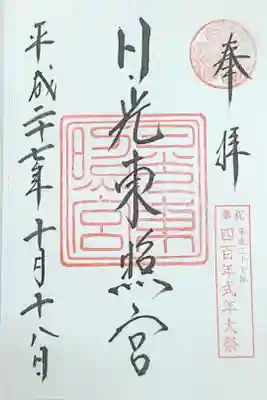 奉拝
祝 平成二十七年
奉 四百年式年大祭
日光東照宮
平成二十七年十月十八日